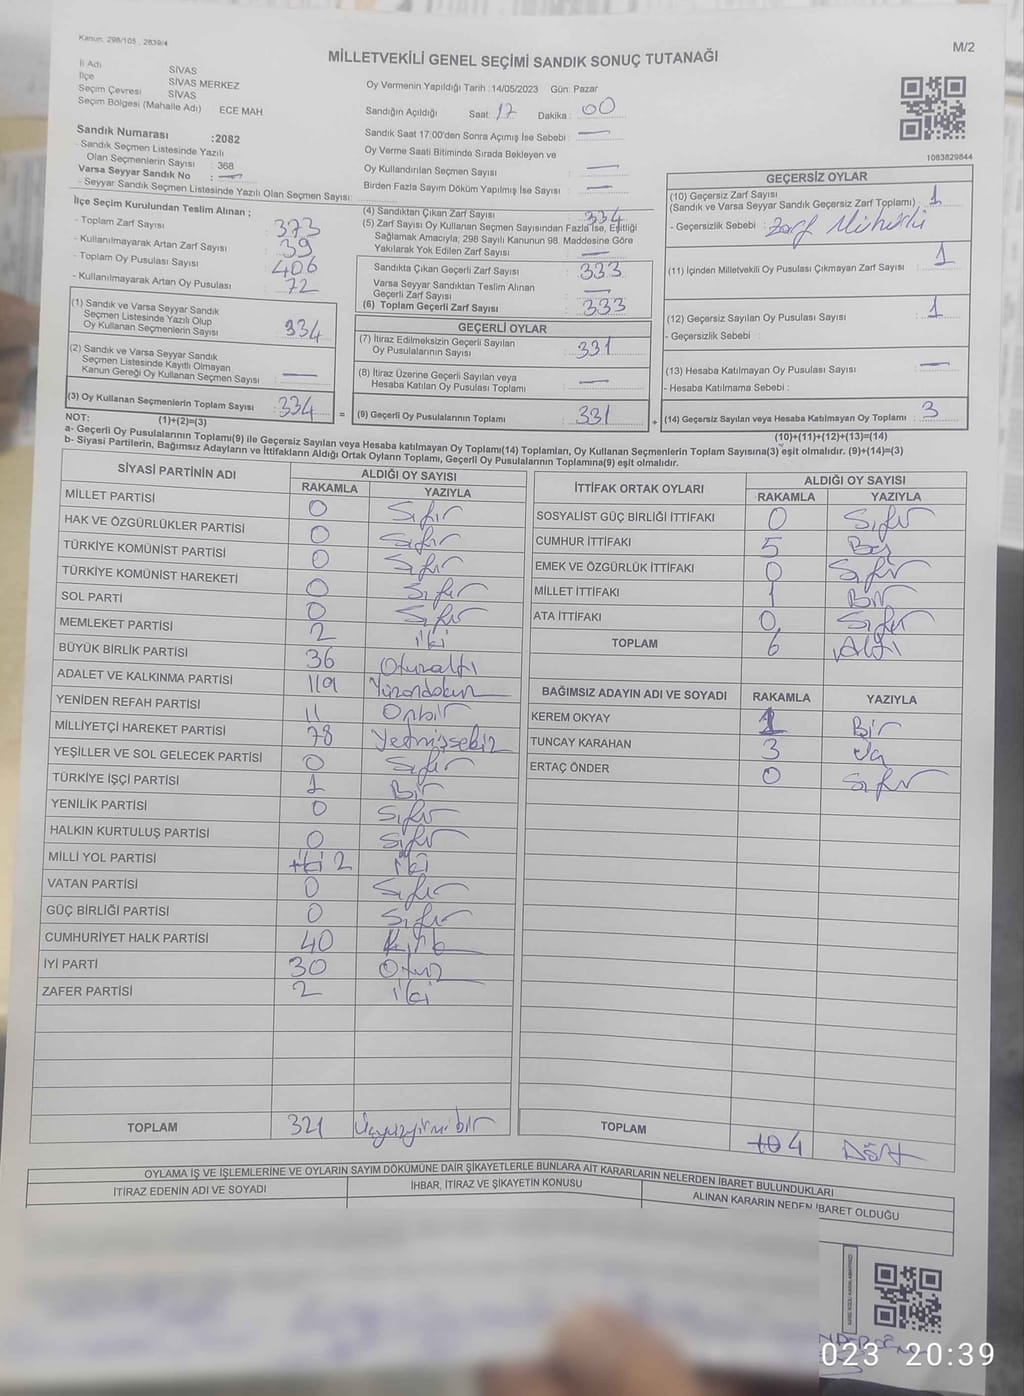 Kanun, 298/105 , 2839/4
M/2
MİLLETVEKİLİ GENEL SEÇİMİ SANDIK SONUÇ TUTANAĞI
İl Adı SİVAS
İlçe SİVAS MERKEZ
Seçim Çevresi SİVAS
Seçim Bölgesi (Mahalle Adı) ECE MAH
Sandık Numarası :2082
- Sandık Seçmen Listesinde Yazılı
Olan Seçmenlerin Sayısı : 368
Varsa Seyyar Sandık No : —
- Seyyar Sandık Seçmen Listesinde Yazılı Olan Seçmen Sayısı:
Oy Vermenin Yapıldığı Tarih :14/05/2023 Gün: Pazar
Sandığın Açıldığı Saat: 17 Dakika : 00
Sandık Saat 17:00'den Sonra Açımış İse Sebebi : —
Oy Verme Saati Bitiminde Sırada Bekleyen ve
Oy Kullandırılan Seçmen Sayısı : —
Birden Fazla Sayım Döküm Yapılmış İse Sayısı : —
1083829844
İlçe Seçim Kurulundan Teslim Alınan ;
- Toplam Zarf Sayısı : 373
- Kullanılmayarak Artan Zarf Sayısı : 39
- Toplam Oy Pusulası Sayısı : 406
- Kullanılmayarak Artan Oy Pusulası : 72
(1) Sandık ve Varsa Seyyar Sandık
Seçmen Listesinde Yazılı Olup
Oy Kullanan Seçmenlerin Sayısı : 334
(2) Sandık ve Varsa Seyyar Sandık
Seçmen Listesinde Kayıtlı Olmayan
Kanun Gereği Oy Kullanan Seçmen Sayısı : —
(3) Oy Kullanan Seçmenlerin Toplam Sayısı : 334
(1)+(2)=(3)
(4) Sandıktan Çıkan Zarf Sayısı : 334
(5) Zarf Sayısı Oy Kullanan Seçmen Sayısından Fazla İse, Eşitliği
Sağlamak Amacıyla, 298 Sayılı Kanunun 98. Maddesine Göre
Yakılarak Yok Edilen Zarf Sayısı : —
Sandıkta Çıkan Geçerli Zarf Sayısı : 333
Varsa Seyyar Sandıktan Teslim Alınan
Geçerli Zarf Sayısı : —
(6) Toplam Geçerli Zarf Sayısı : 333
GEÇERLİ OYLAR
(7) İtiraz Edilmeksizin Geçerli Sayılan
Oy Pusulalarının Sayısı : 331
(8) İtiraz Üzerine Geçerli Sayılan veya
Hesaba Katılan Oy Pusulası Toplamı : —
= (9) Geçerli Oy Pusulalarının Toplamı : 331
GEÇERSİZ OYLAR
(10) Geçersiz Zarf Sayısı
(Sandık ve Varsa Seyyar Sandık Geçersiz Zarf Toplamı) : 1
- Geçersizlik Sebebi : Zarf Mühürlü
(11) İçinden Milletvekili Oy Pusulası Çıkmayan Zarf Sayısı : 1
(12) Geçersiz Sayılan Oy Pusulası Sayısı : 1
- Geçersizlik Sebebi :
(13) Hesaba Katılmayan Oy Pusulası Sayısı : —
- Hesaba Katılmama Sebebi :
+ (14) Geçersiz Sayılan veya Hesaba Katılmayan Oy Toplamı : 3
(10)+(11)+(12)+(13)=(14)
NOT:
a- Geçerli Oy Pusulalarının Toplamı(9) ile Geçersiz Sayılan veya Hesaba katılmayan Oy Toplamı(14) Toplamları, Oy Kullanan Seçmenlerin Toplam Sayısına(3) eşit olmalıdır. (9)+(14)=(3)
b- Siyasi Partilerin, Bağımsız Adayların ve İttifakların Aldığı Ortak Oyların Toplamı, Geçerli Oy Pusulalarının Toplamına(9) eşit olmalıdır.
SİYASİ PARTİNİN ADI ALDIĞI OY SAYISI
RAKAMLA YAZIYLA
MİLLET PARTİSİ 0 Sıfır
HAK VE ÖZGÜRLÜKLER PARTİSİ 0 Sıfır
TÜRKİYE KOMÜNİST PARTİSİ 0 Sıfır
TÜRKİYE KOMÜNİST HAREKETİ 0 Sıfır
SOL PARTİ 0 Sıfır
MEMLEKET PARTİSİ 2 iki
BÜYÜK BİRLİK PARTİSİ 36 Otuzaltı
ADALET VE KALKINMA PARTİSİ 119 Yüzondokuz
YENİDEN REFAH PARTİSİ 11 Onbir
MİLLİYETÇİ HAREKET PARTİSİ 78 Yetmişsekiz
YEŞİLLER VE SOL GELECEK PARTİSİ 0 Sıfır
TÜRKİYE İŞÇİ PARTİSİ 1 Bir
YENİLİK PARTİSİ 0 Sıfır
HALKIN KURTULUŞ PARTİSİ 0 Sıfır
MİLLİ YOL PARTİSİ 2 iki
VATAN PARTİSİ 0 Sıfır
GÜÇ BİRLİĞİ PARTİSİ 0 Sıfır
CUMHURİYET HALK PARTİSİ 40 Kırk
İYİ PARTİ 30 Otuz
ZAFER PARTİSİ 2 iki
TOPLAM 321 Üçyüzyirmibir
İTTİFAK ORTAK OYLARI ALDIĞI OY SAYISI
RAKAMLA YAZIYLA
SOSYALİST GÜÇ BİRLİĞİ İTTİFAKI 0 Sıfır
CUMHUR İTTİFAKI 5 Beş
EMEK VE ÖZGÜRLÜK İTTİFAKI 0 Sıfır
MİLLET İTTİFAKI 1 Bir
ATA İTTİFAKI 0 Sıfır
TOPLAM 6 Altı
BAĞIMSIZ ADAYIN ADI VE SOYADI RAKAMLA YAZIYLA
KEREM OKYAY 1 Bir
TUNCAY KARAHAN 3 Üç
ERTAÇ ÖNDER 0 Sıfır
TOPLAM 4 Dört
OYLAMA İŞ VE İŞLEMLERİNE VE OYLARIN SAYIM DÖKÜMÜNE DAİR ŞİKAYETLERLE BUNLARA AİT KARARLARIN NELERDEN İBARET BULUNDUKLARI
İTİRAZ EDENİN ADI VE SOYADI İHBAR, İTİRAZ VE ŞİKAYETİN KONUSU ALINAN KARARIN NEDEN İBARET OLDUĞU
023 20:39